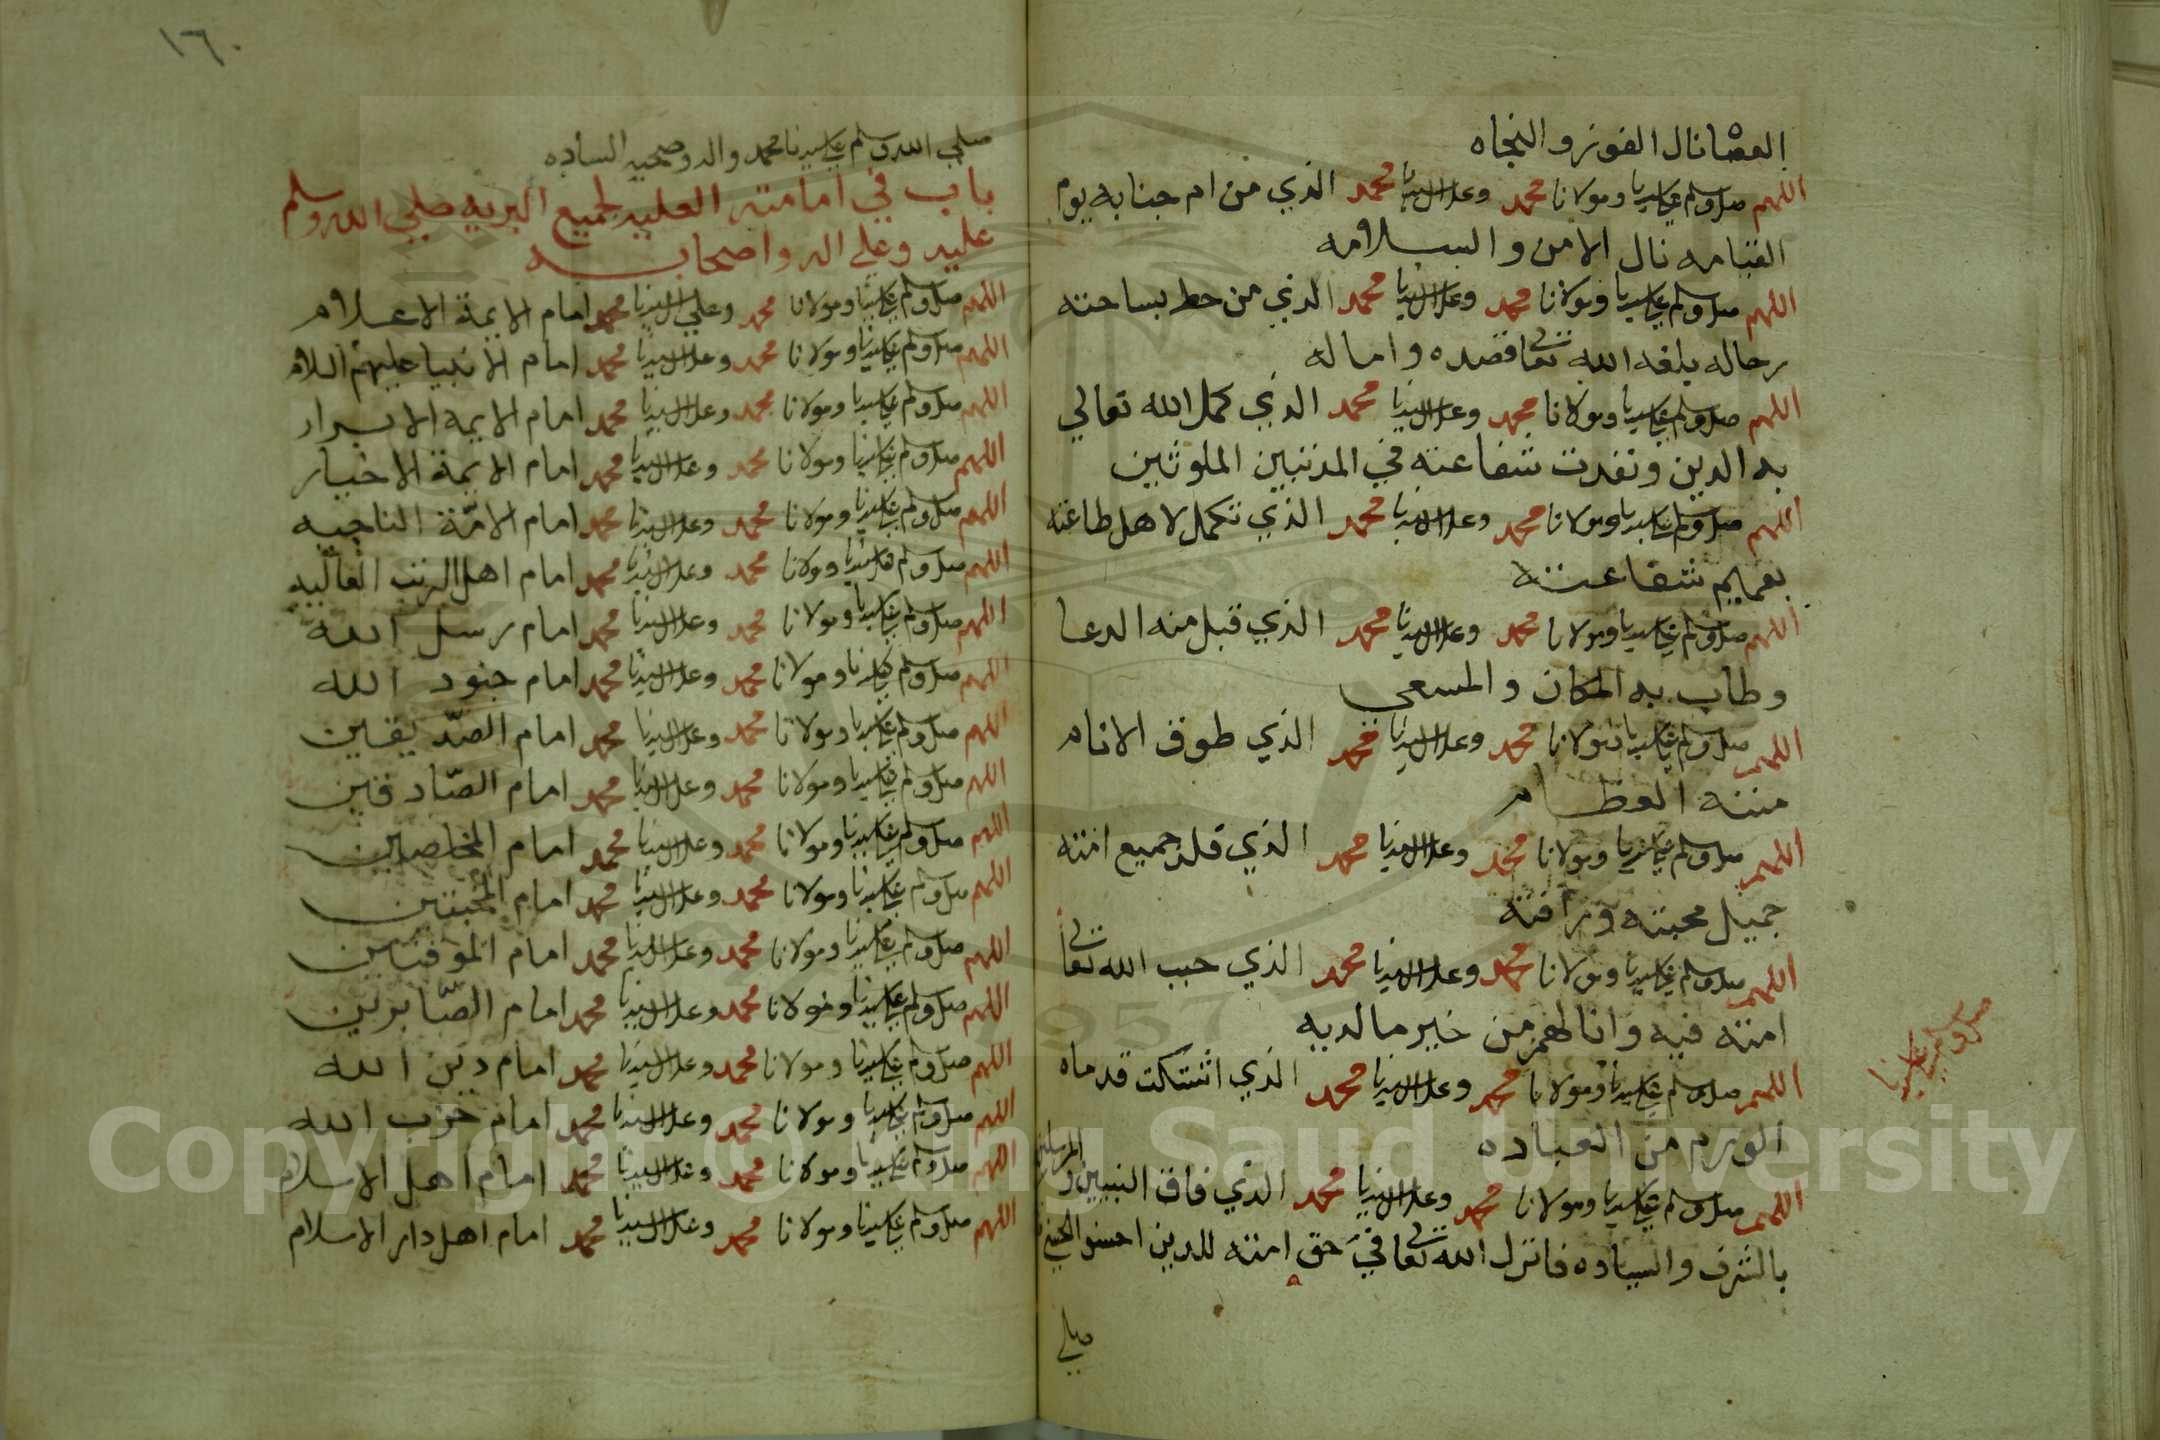 العصا نال الفوز والنجاه
اللهم صل وسلم على سيدنا ومولانا محمد وعلى ال سيدنا محمد الذي من ام جنابه يوم
القيامه نال الامن والسلامه
اللهم صل وسلم على سيدنا ومولانا محمد وعلى ال سيدنا محمد الذي من حط بساحته
رحاله بلغه الله تعالى قصده واماله
اللهم صل وسلم على سيدنا ومولانا محمد وعلى ال سيدنا محمد الذي كمل الله تعالي
به الدين ونفدت شفاعته في المذنبين الملوثين
اللهم صل وسلم على سيدنا ومولانا محمد وعلى ال سيدنا محمد الذي تكمل لاهل طاعته
بعميم شفاعته
اللهم صل وسلم على سيدنا ومولانا محمد وعلى ال سيدنا محمد الذي قبل منه الدعا
وطاب به المكان والمسعى
اللهم صل وسلم على سيدنا ومولانا محمد وعلى ال سيدنا محمد الذي طوق الانام
مننه العظام
اللهم صل وسلم على سيدنا ومولانا محمد وعلى ال سيدنا محمد الذي قلد جميع امته
جميل محبته ورافته
اللهم صل وسلم على سيدنا ومولانا محمد وعلى ال سيدنا محمد الذي حبب الله تعالى
امته فيه وانالهم من خير ما لديه
اللهم صل وسلم على سيدنا ومولانا محمد وعلى ال سيدنا محمد الذي اشتكت قدماه
الورم من العباده
اللهم صل وسلم على سيدنا ومولانا محمد وعلى ال سيدنا محمد الذي فاق النبيين والمرسلين
بالشرف والسياده فانزل الله تعالى في حق امته للدين احسنوا الحسنى
صلي
صل وسلم على سيدنا
١٦٠
صلي الله وسلم على سيدنا محمد واله وصحبه الساده
باب في امامته العليه لجميع البريه صلي الله وسلم
عليه وعلي اله واصحابه
اللهم صل وسلم على سيدنا ومولانا محمد وعلي ال سيدنا محمد امام الايمة الاعلام
اللهم صل وسلم على سيدنا ومولانا محمد وعلى ال سيدنا محمد امام الانبيا عليهم السلام
اللهم صل وسلم على سيدنا ومولانا محمد وعلى ال سيدنا محمد امام الايمه الابرار
اللهم صل وسلم على سيدنا ومولانا محمد وعلى ال سيدنا محمد امام الايمة الاخيار
اللهم صل وسلم على سيدنا ومولانا محمد وعلى ال سيدنا محمد امام الامّة الناجيه
اللهم صل وسلم على سيدنا ومولانا محمد وعلى ال سيدنا محمد امام اهل الرتب العاليه
اللهم صل وسلم على سيدنا ومولانا محمد وعلى ال سيدنا محمد امام رسل الله
اللهم صل وسلم على سيدنا ومولانا محمد وعلى ال سيدنا محمد امام جنود الله
اللهم صل وسلم على سيدنا ومولانا محمد وعلى ال سيدنا محمد امام الصّديقين
اللهم صل وسلم على سيدنا ومولانا محمد وعلى ال سيدنا محمد امام الصّادقين
اللهم صل وسلم على سيدنا ومولانا محمد وعلى ال سيدنا محمد امام المخلصين
اللهم صل وسلم على سيدنا ومولانا محمد وعلى ال سيدنا محمد امام المخبتين
اللهم صل وسلم على سيدنا ومولانا محمد وعلى ال سيدنا محمد امام الموقنين
اللهم صل وسلم على سيدنا ومولانا محمد وعلى ال سيدنا محمد امام الصّابرين
اللهم صل وسلم على سيدنا ومولانا محمد وعلى ال سيدنا محمد امام دين الله
اللهم صل وسلم على سيدنا ومولانا محمد وعلى ال سيدنا محمد امام حزب الله
اللهم صل وسلم على سيدنا ومولانا محمد وعلى ال سيدنا محمد امام اهل الاسلام
اللهم صل وسلم على سيدنا ومولانا محمد وعلى ال سيدنا محمد امام اهل دار الاسلام
Copyright © King Saud University
1957